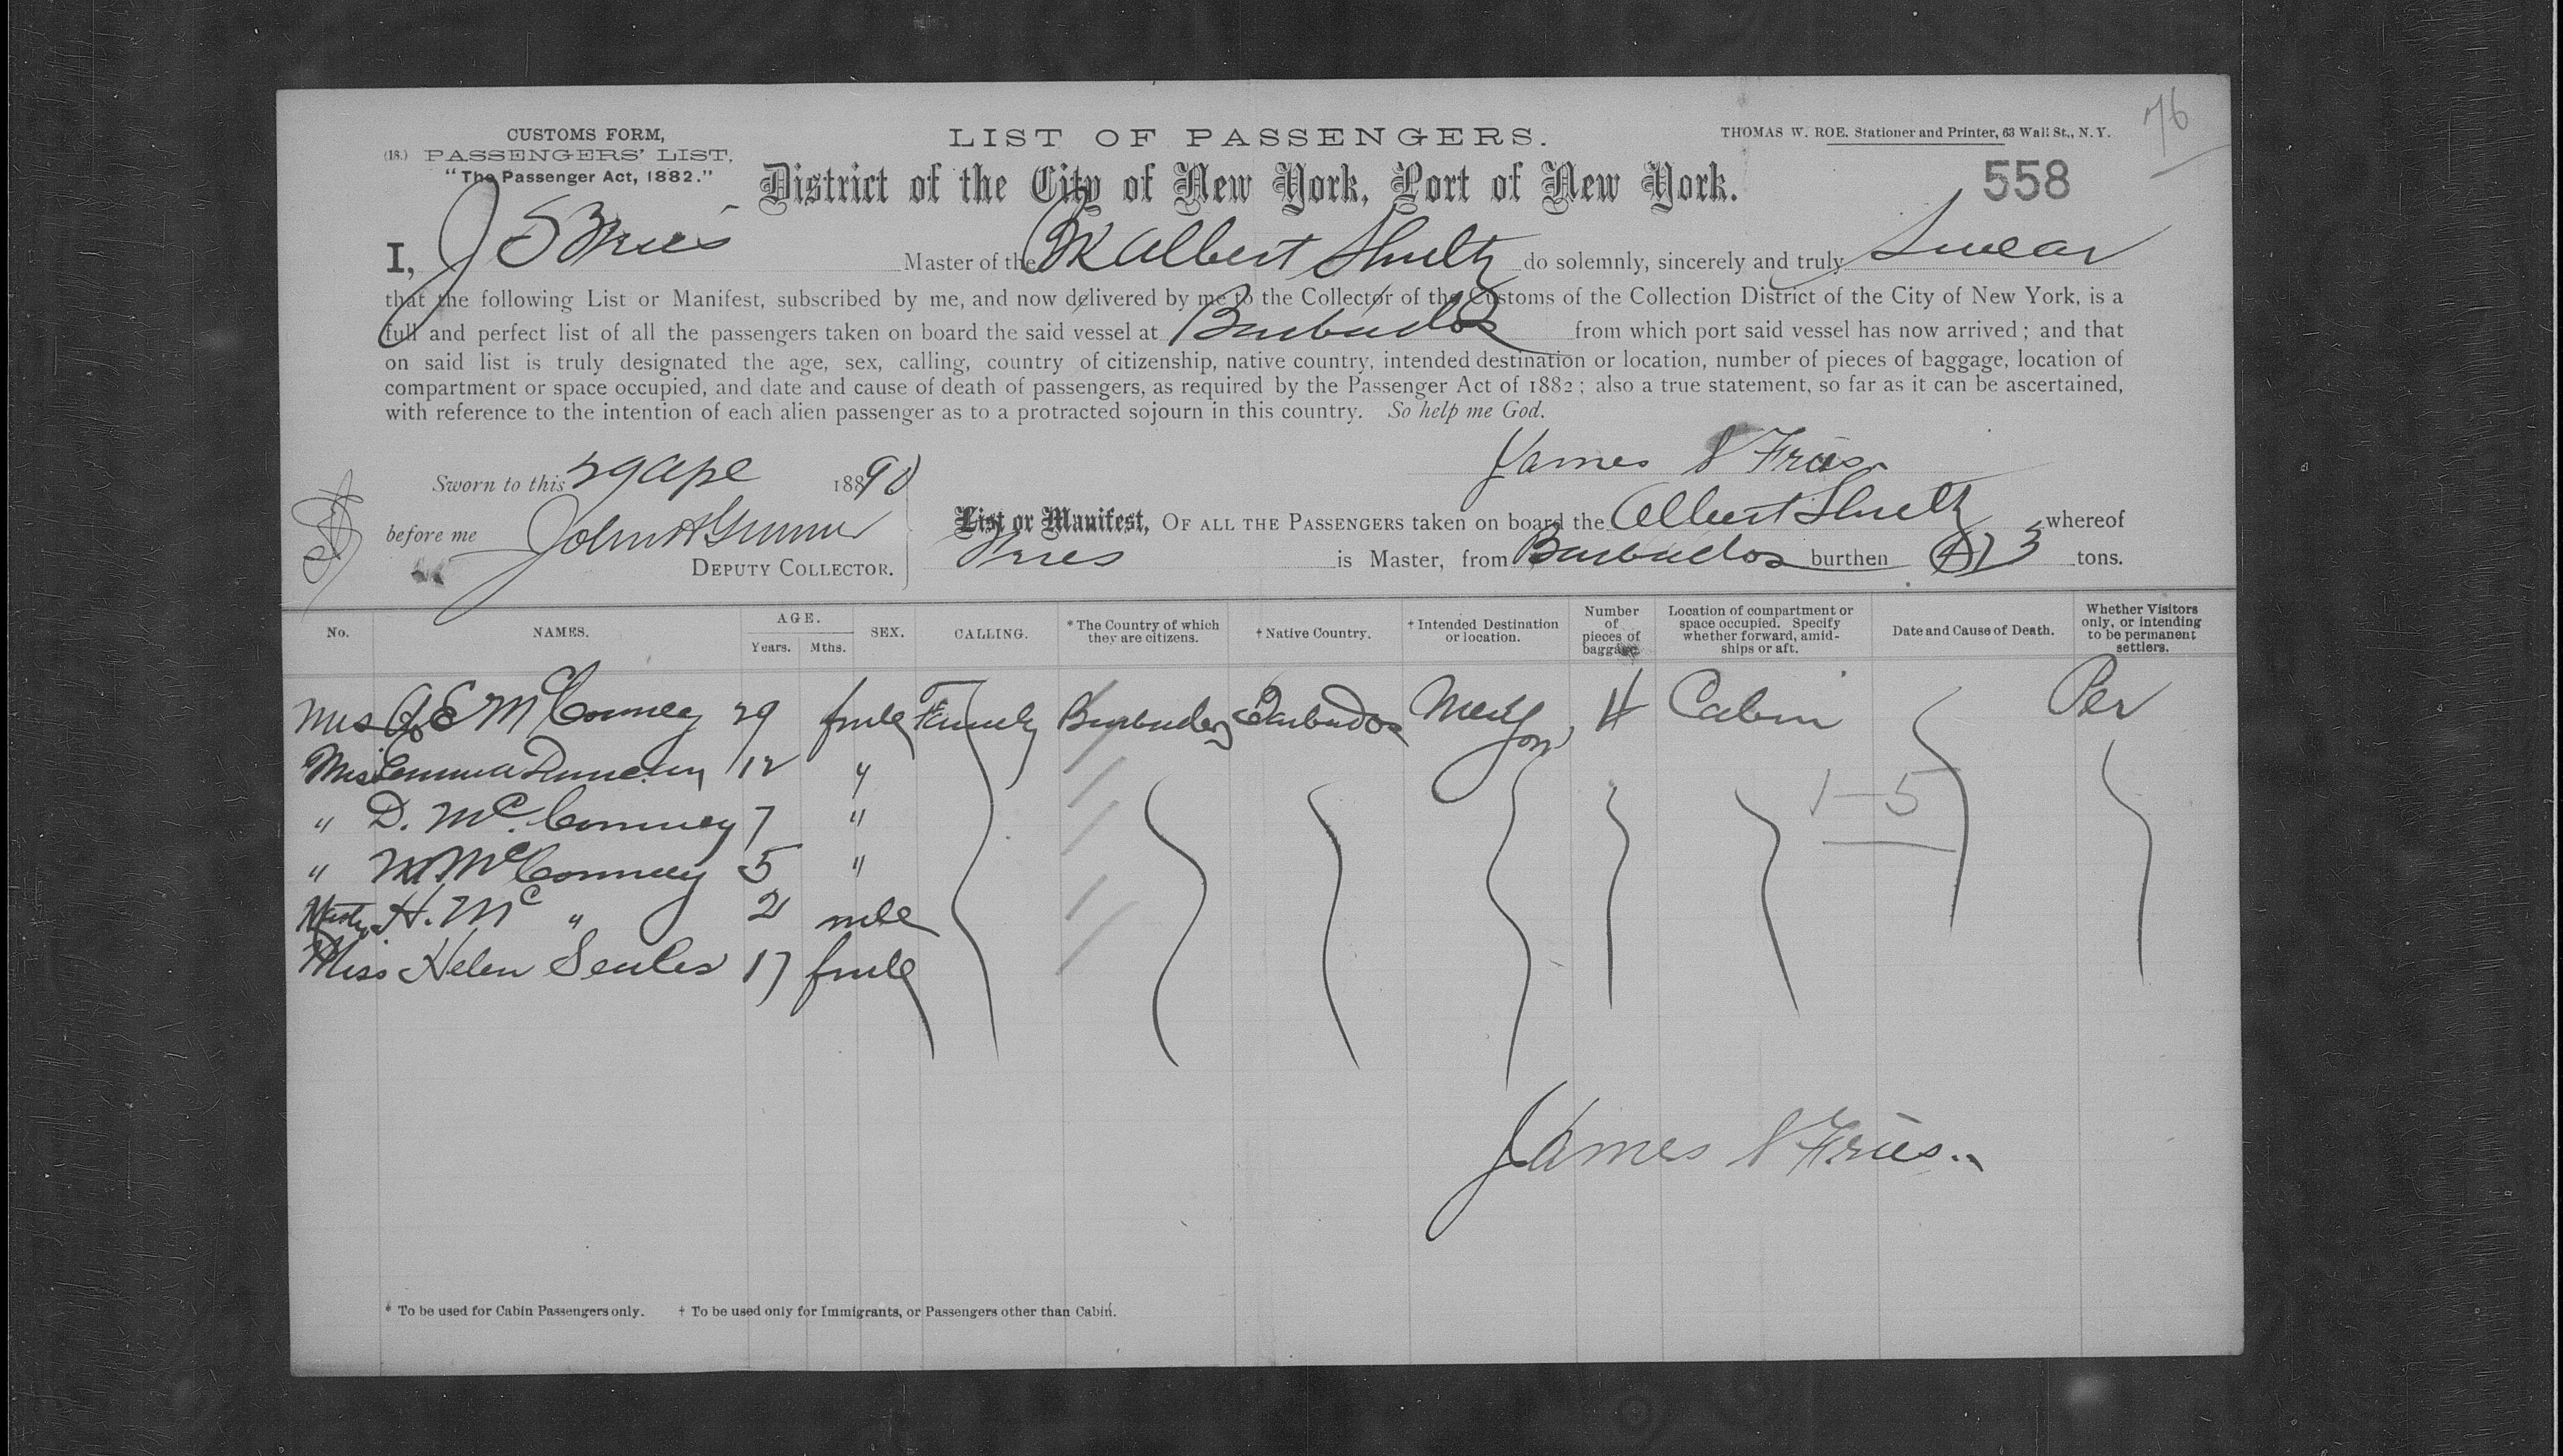 76
CUSTOMS FORM,
(18.) PASSENGERS' LIST.
"The Passenger Act, 1882."
LIST OF PASSENGERS.
THOMAS W. ROE. Stationer and Printer, 63 Wall St., N.Y.
558
District of the City of New York, Port of New York.
I, J S Fries Master of the Bk Albert Shultz do solemnly, sincerely and truly Swear
that the following List or Manifest, subscribed by me, and now delivered by me to the Collector of the Customs of the Collection District of the City of New York, is a
full and perfect list of all the passengers taken on board the said vessel at Barbados from which port said vessel has now arrived; and that
on said list is truly designated the age, sex, calling, country of citizenship, native country, intended destination or location, number of pieces of baggage, location of
compartment or space occupied, and date and cause of death of passengers, as required by the Passenger Act of 1882; also a true statement, so far as it can be ascertained,
with reference to the intention of each alien passenger as to a protracted sojourn in this country. So help me God.
James S Fries
Sworn to this 29 Apl 1890
before me John A
DEPUTY COLLECTOR.
List or Manifest, OF ALL THE PASSENGERS taken on board the Albert Shultz whereof
Fries is Master, from Barbados burthen tons.
No. NAMES. AGE. Years. Mths. SEX. CALLING. * The Country of which they are citizens. † Native Country. † Intended Destination or location. Number of pieces of baggage. Location of compartment or space occupied. Specify whether forward, amidships or aft. Date and Cause of Death. Whether Visitors only, or intending to be permanent settlers.
Mrs E McConney 29 fmle Family Barbados Barbados New York 4 Cabin Per
Miss Emma Duncan 12 "
" D. McConney 7 "
" M. McConney 5 "
Master H. Mc " 2 mle
Miss Helen 17 fmle
1-5
James S Fries
* To be used for Cabin Passengers only. † To be used only for Immigrants, or Passengers other than Cabin.